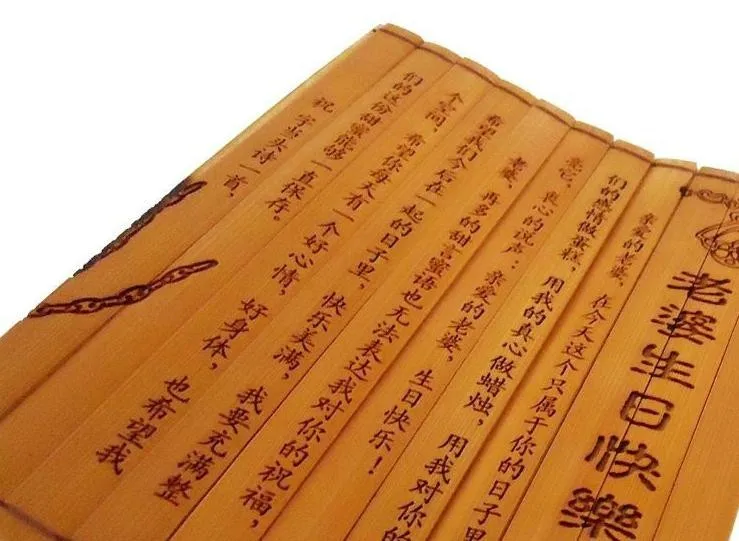 老婆生日快樂
亲爱的老婆，在今天这个只属于你的日子里
们的感情做蛋糕，用我的真心做蜡烛，用我对你的
亮它，衷心的说声：亲爱的老婆，生日快乐！
老婆，再多的甜言蜜语也无法表达我对你的祝福，
希望我们今后在一起的日子里，快乐美满，我要充满整
个空间，希望你每天有一个好心情，好身体，也希望我
们的这份甜蜜能够一直保存。
祝 字当头诗一首，